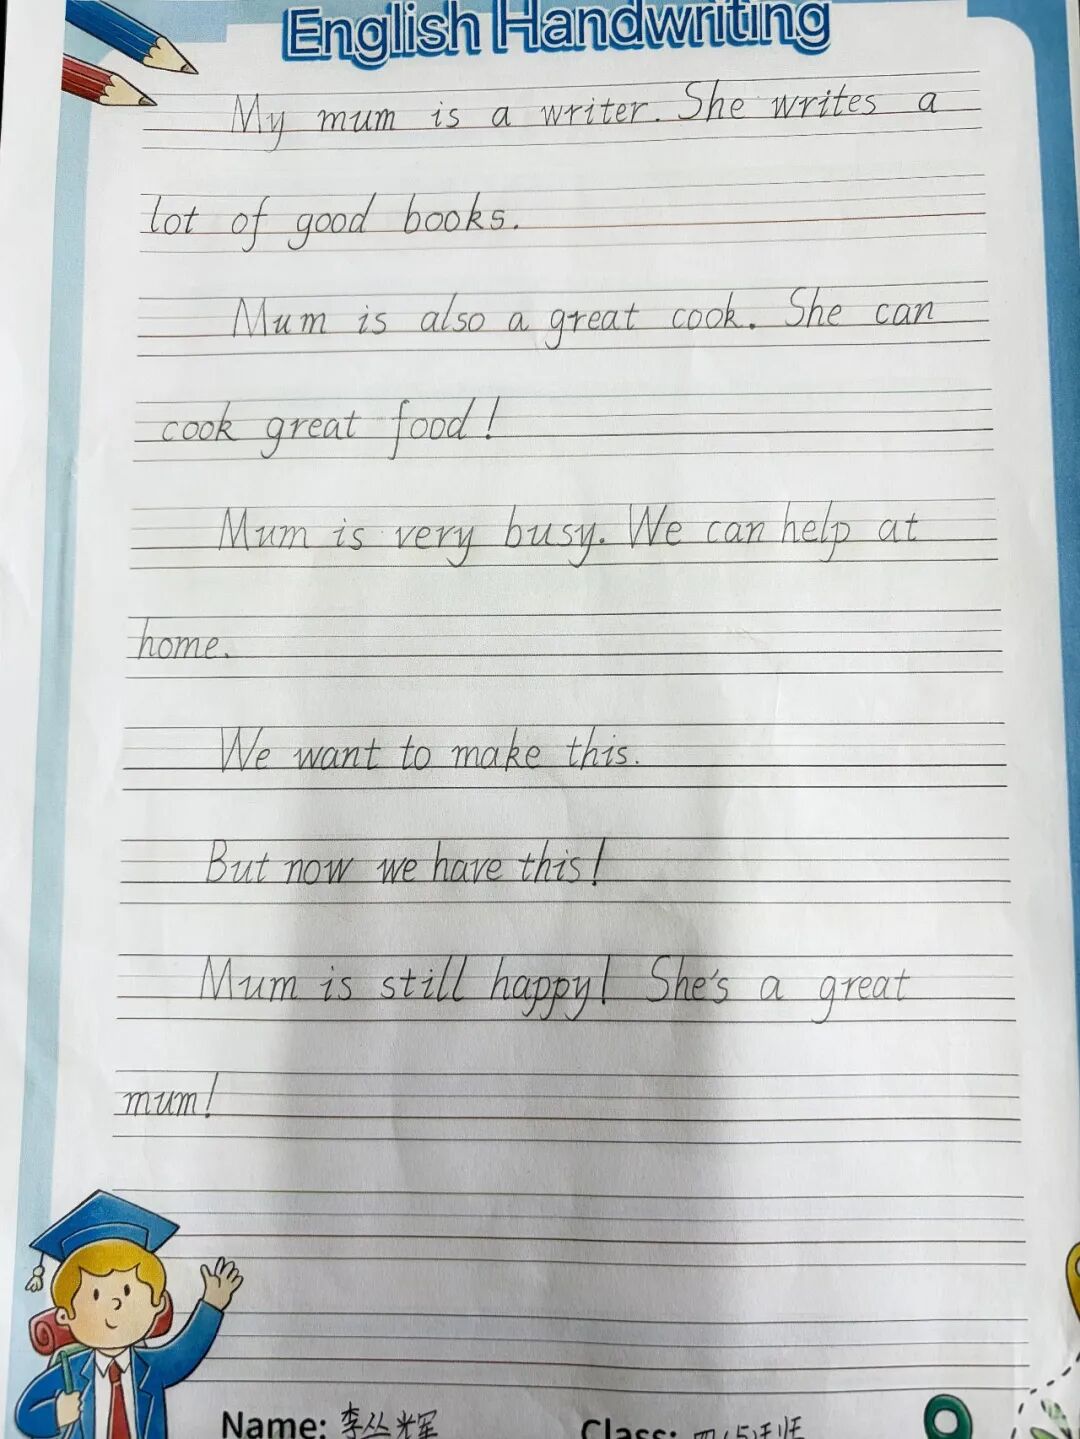 English Handwriting
My mum is a writer. She writes a
lot of good books.
Mum is also a great cook. She can
cook great food!
Mum is very busy. We can help at
home.
We want to make this.
But now we have this!
Mum is still happy! She's a great
mum!
Name: 李丛辉 Class: